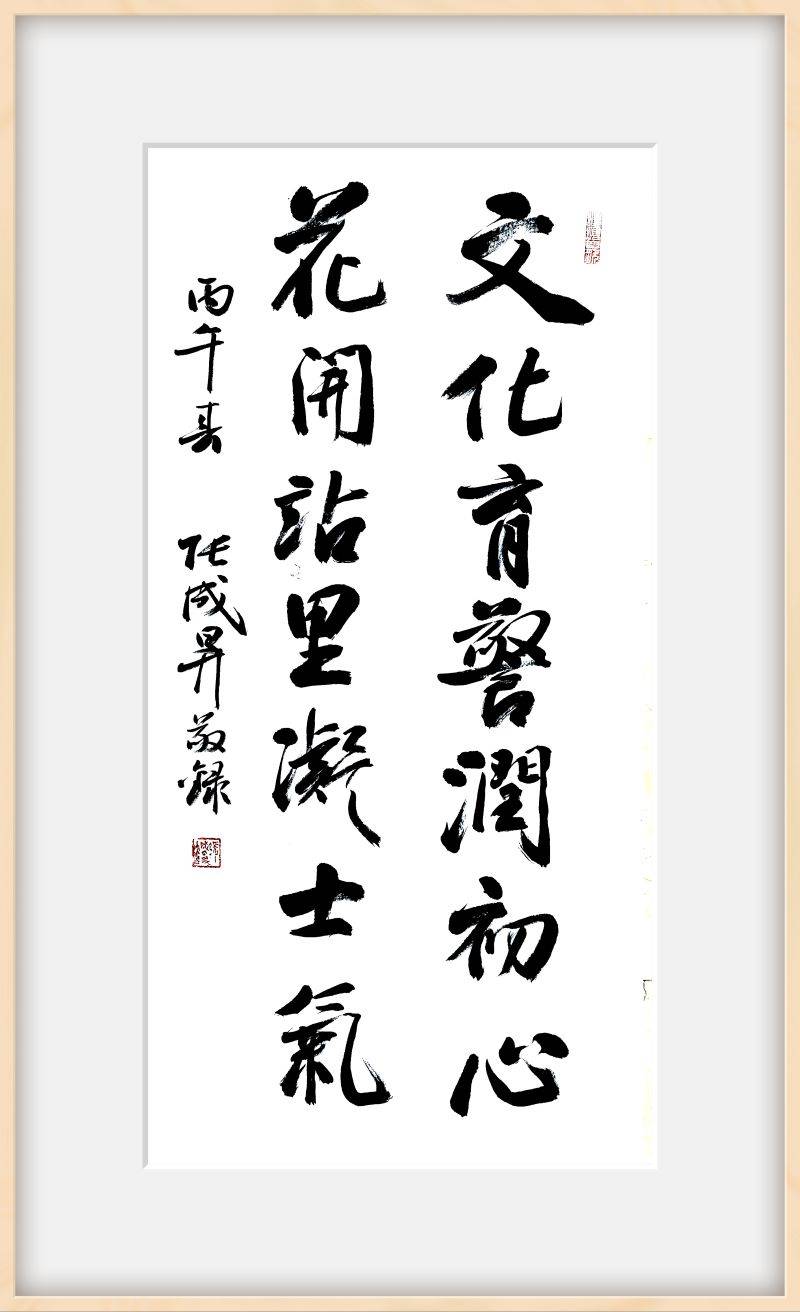 文化育警潤初心
花開站里凝士氣
丙午春 张成昇敬録